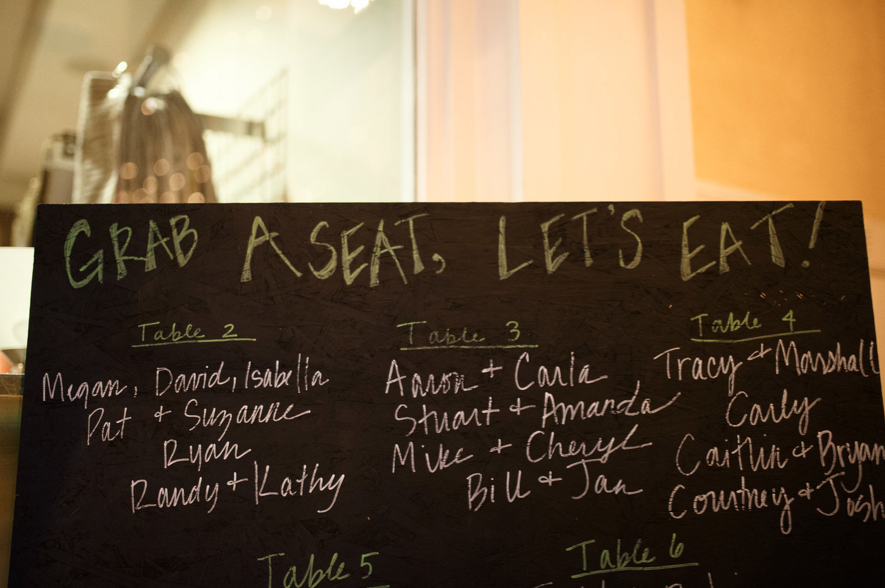 GRAB A SEAT, LET'S EAT!
Table 2
Megan, David, Isabella
Pat + Suzanne
Ryan
Randy + Kathy
Table 3
Aaron + Carla
Stuart + Amanda
Mike + Cheryl
Bill + Jan
Table 4
Tracy + Marshall
Carly
Caitlin + Bryan
Courtney + Josh
Table 5
Table 6